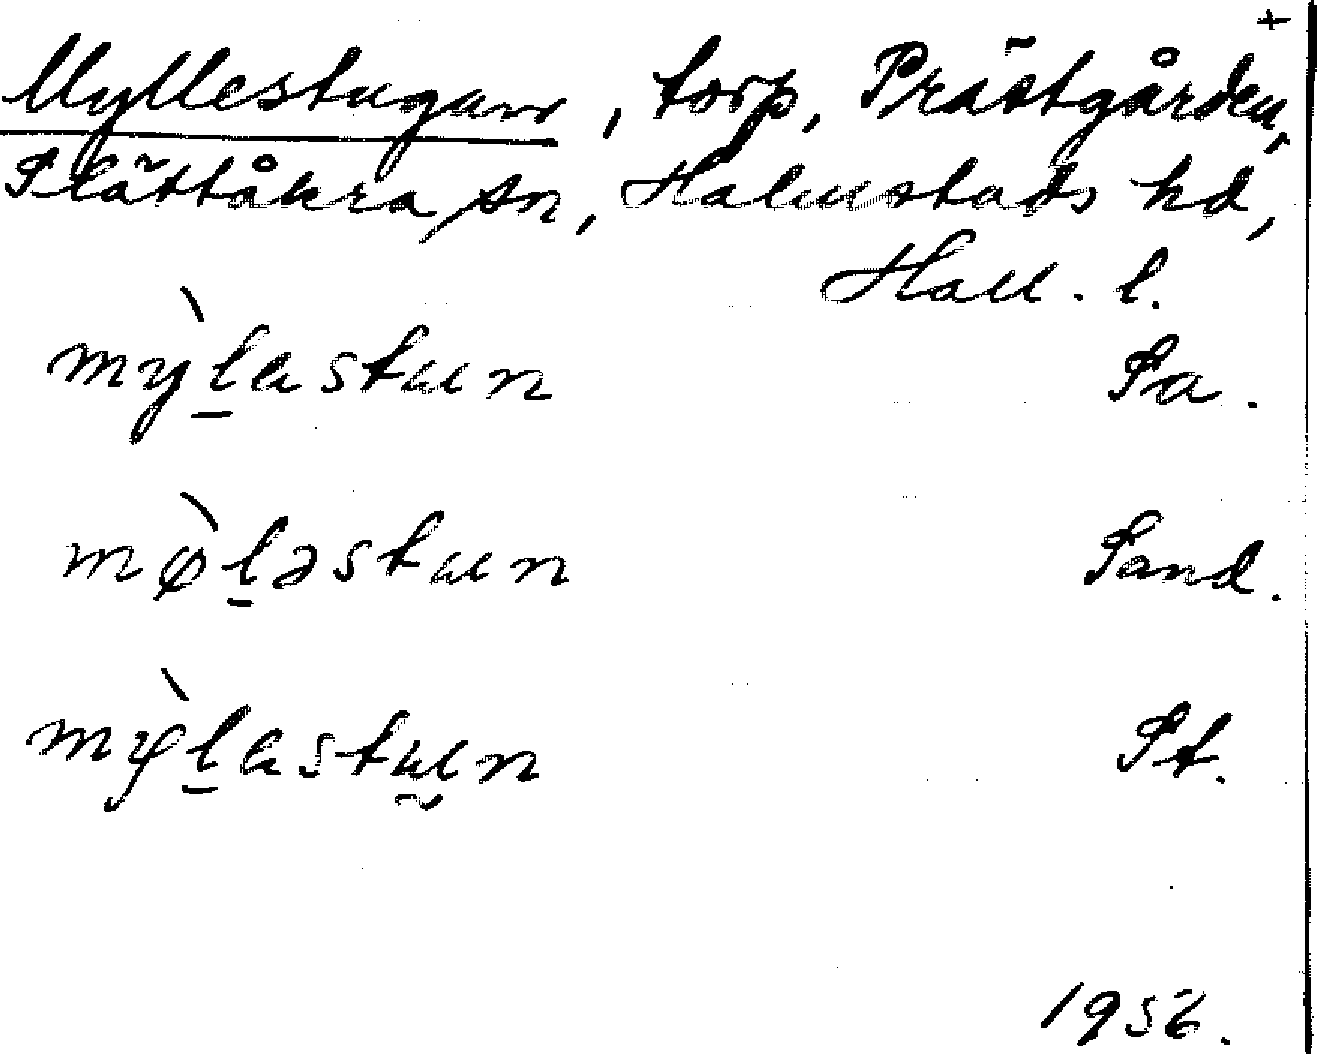 +
Myllestugan, torp, Prästgården,
Slättåkra sn, Halmstads hd,
Hall. l.
mỳl̠astuen Sa.
mø̀l̠əstuen Sand.
mỳl̠astuen St.
1956.